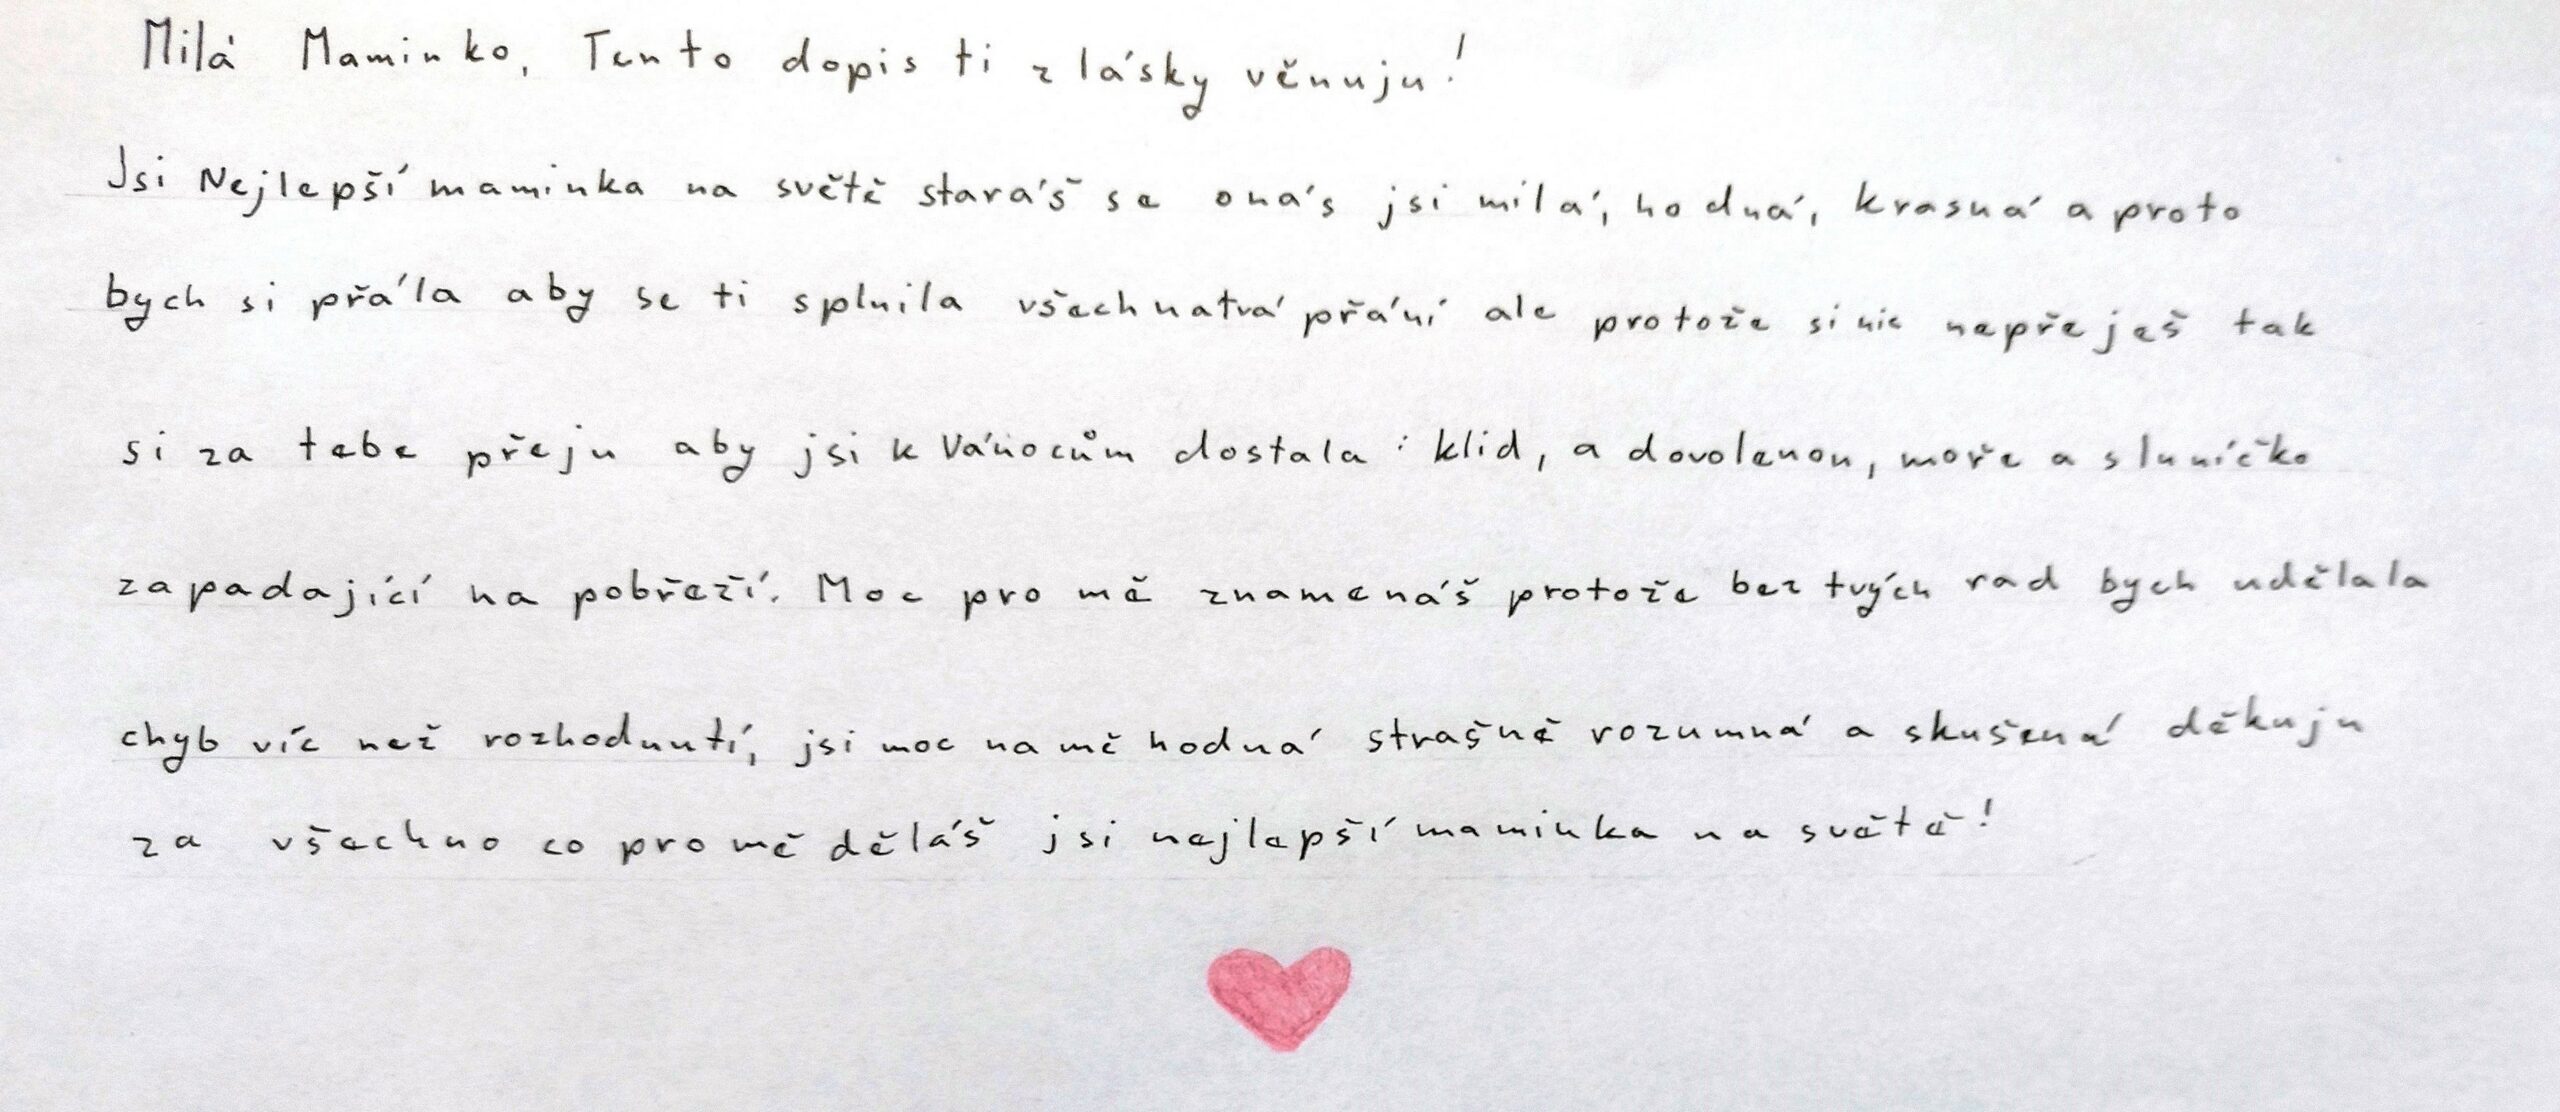 Milá Maminko, Tento dopis ti z lásky věnuju!
Jsi Nejlepší maminka na světě staráš se onás jsi milá, hodná, krasná a proto
bych si přála aby se ti splnila všechnatvá přání ale protože si nic nepřeješ tak
si za tebe přeju aby jsi k Vánocům dostala: klid, a dovolenou, moře a sluníčko
zapadající na pobřeží. Moc pro mě znamenáš protože bez tvých rad bych udělala
chyb víc než rozhodnutí, jsi moc na mě hodná strašně rozumná a skušená děkuju
za všechno co pro mě děláš jsi nejlepší maminka na světě!